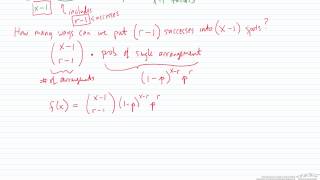 x-1
includes
r-1 successes
x-1
How many ways can we put (r-1) successes into (x-1) spots?
(x-1 r-1) · prob of single arrangement
# of arrangements (1-p)^{x-r} p^r
f(x) = (x-1 r-1) (1-p)^{x-r} p^r